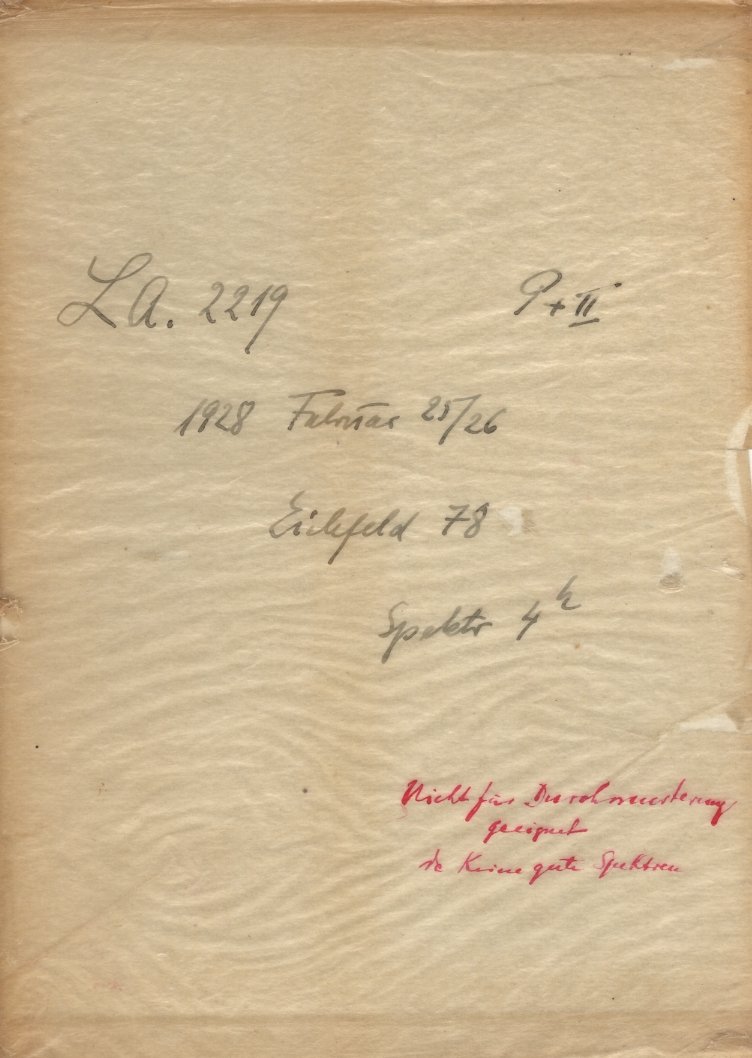 LA. 2219 P+II
1928 Februar 25/26
Eichfeld 78
Spektr 4h
Nicht für Durchmusterung
geeignet
da Keine gute Spektren